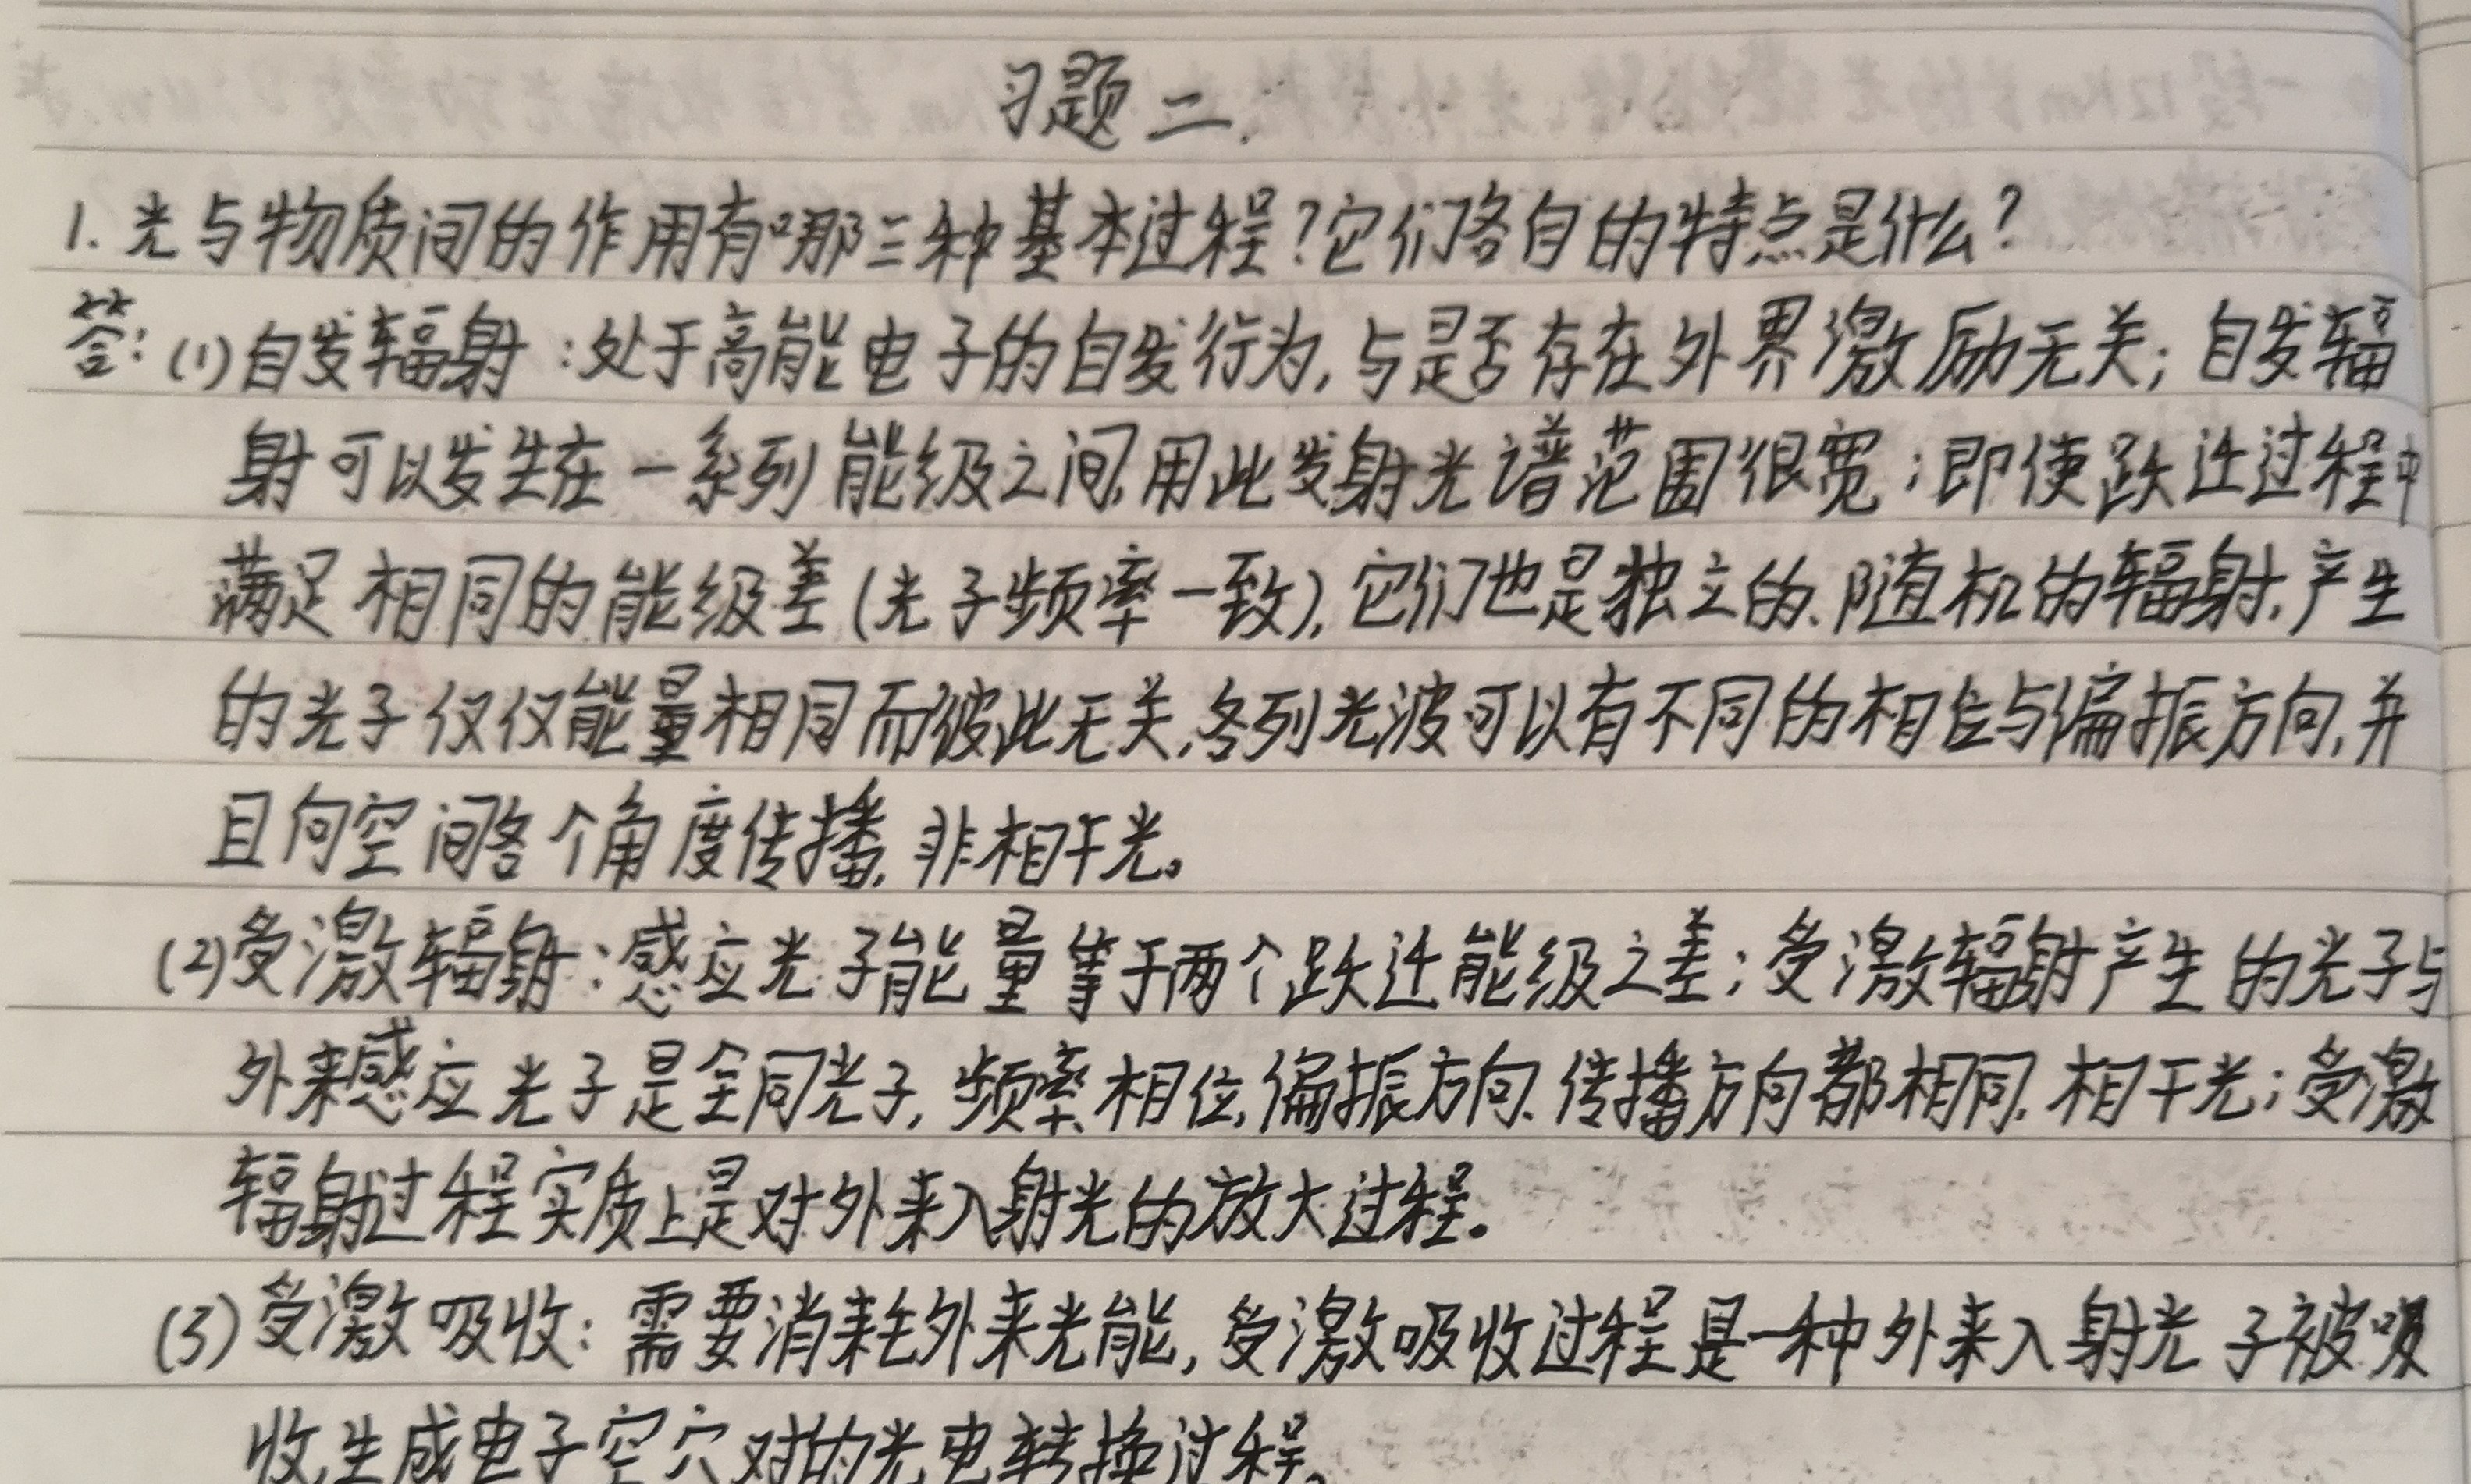 习题二.
1.光与物质间的作用有哪三种基本过程?它们各自的特点是什么?
答:(1)自发辐射:处于高能电子的自发行为,与是否存在外界激励无关;自发辐
射可以发生在一系列能级之间,用此发射光谱范围很宽;即使跃迁过程中
满足相同的能级差(光子频率一致),它们也是独立的、随机的辐射,产生
的光子仅仅能量相同而彼此无关,各列光波可以有不同的相位与偏振方向,并
且向空间各个角度传播,非相干光。
(2)受激辐射:感应光子能量等于两个跃迁能级之差;受激辐射产生的光子与
外来感应光子是全同光子,频率、相位、偏振方向、传播方向都相同,相干光;受激
辐射过程实质上是对外来入射光的放大过程。
(3)受激吸收:需要消耗外来光能,受激吸收过程是一种外来入射光子被吸
收,生成电子空穴对的光电转换过程。